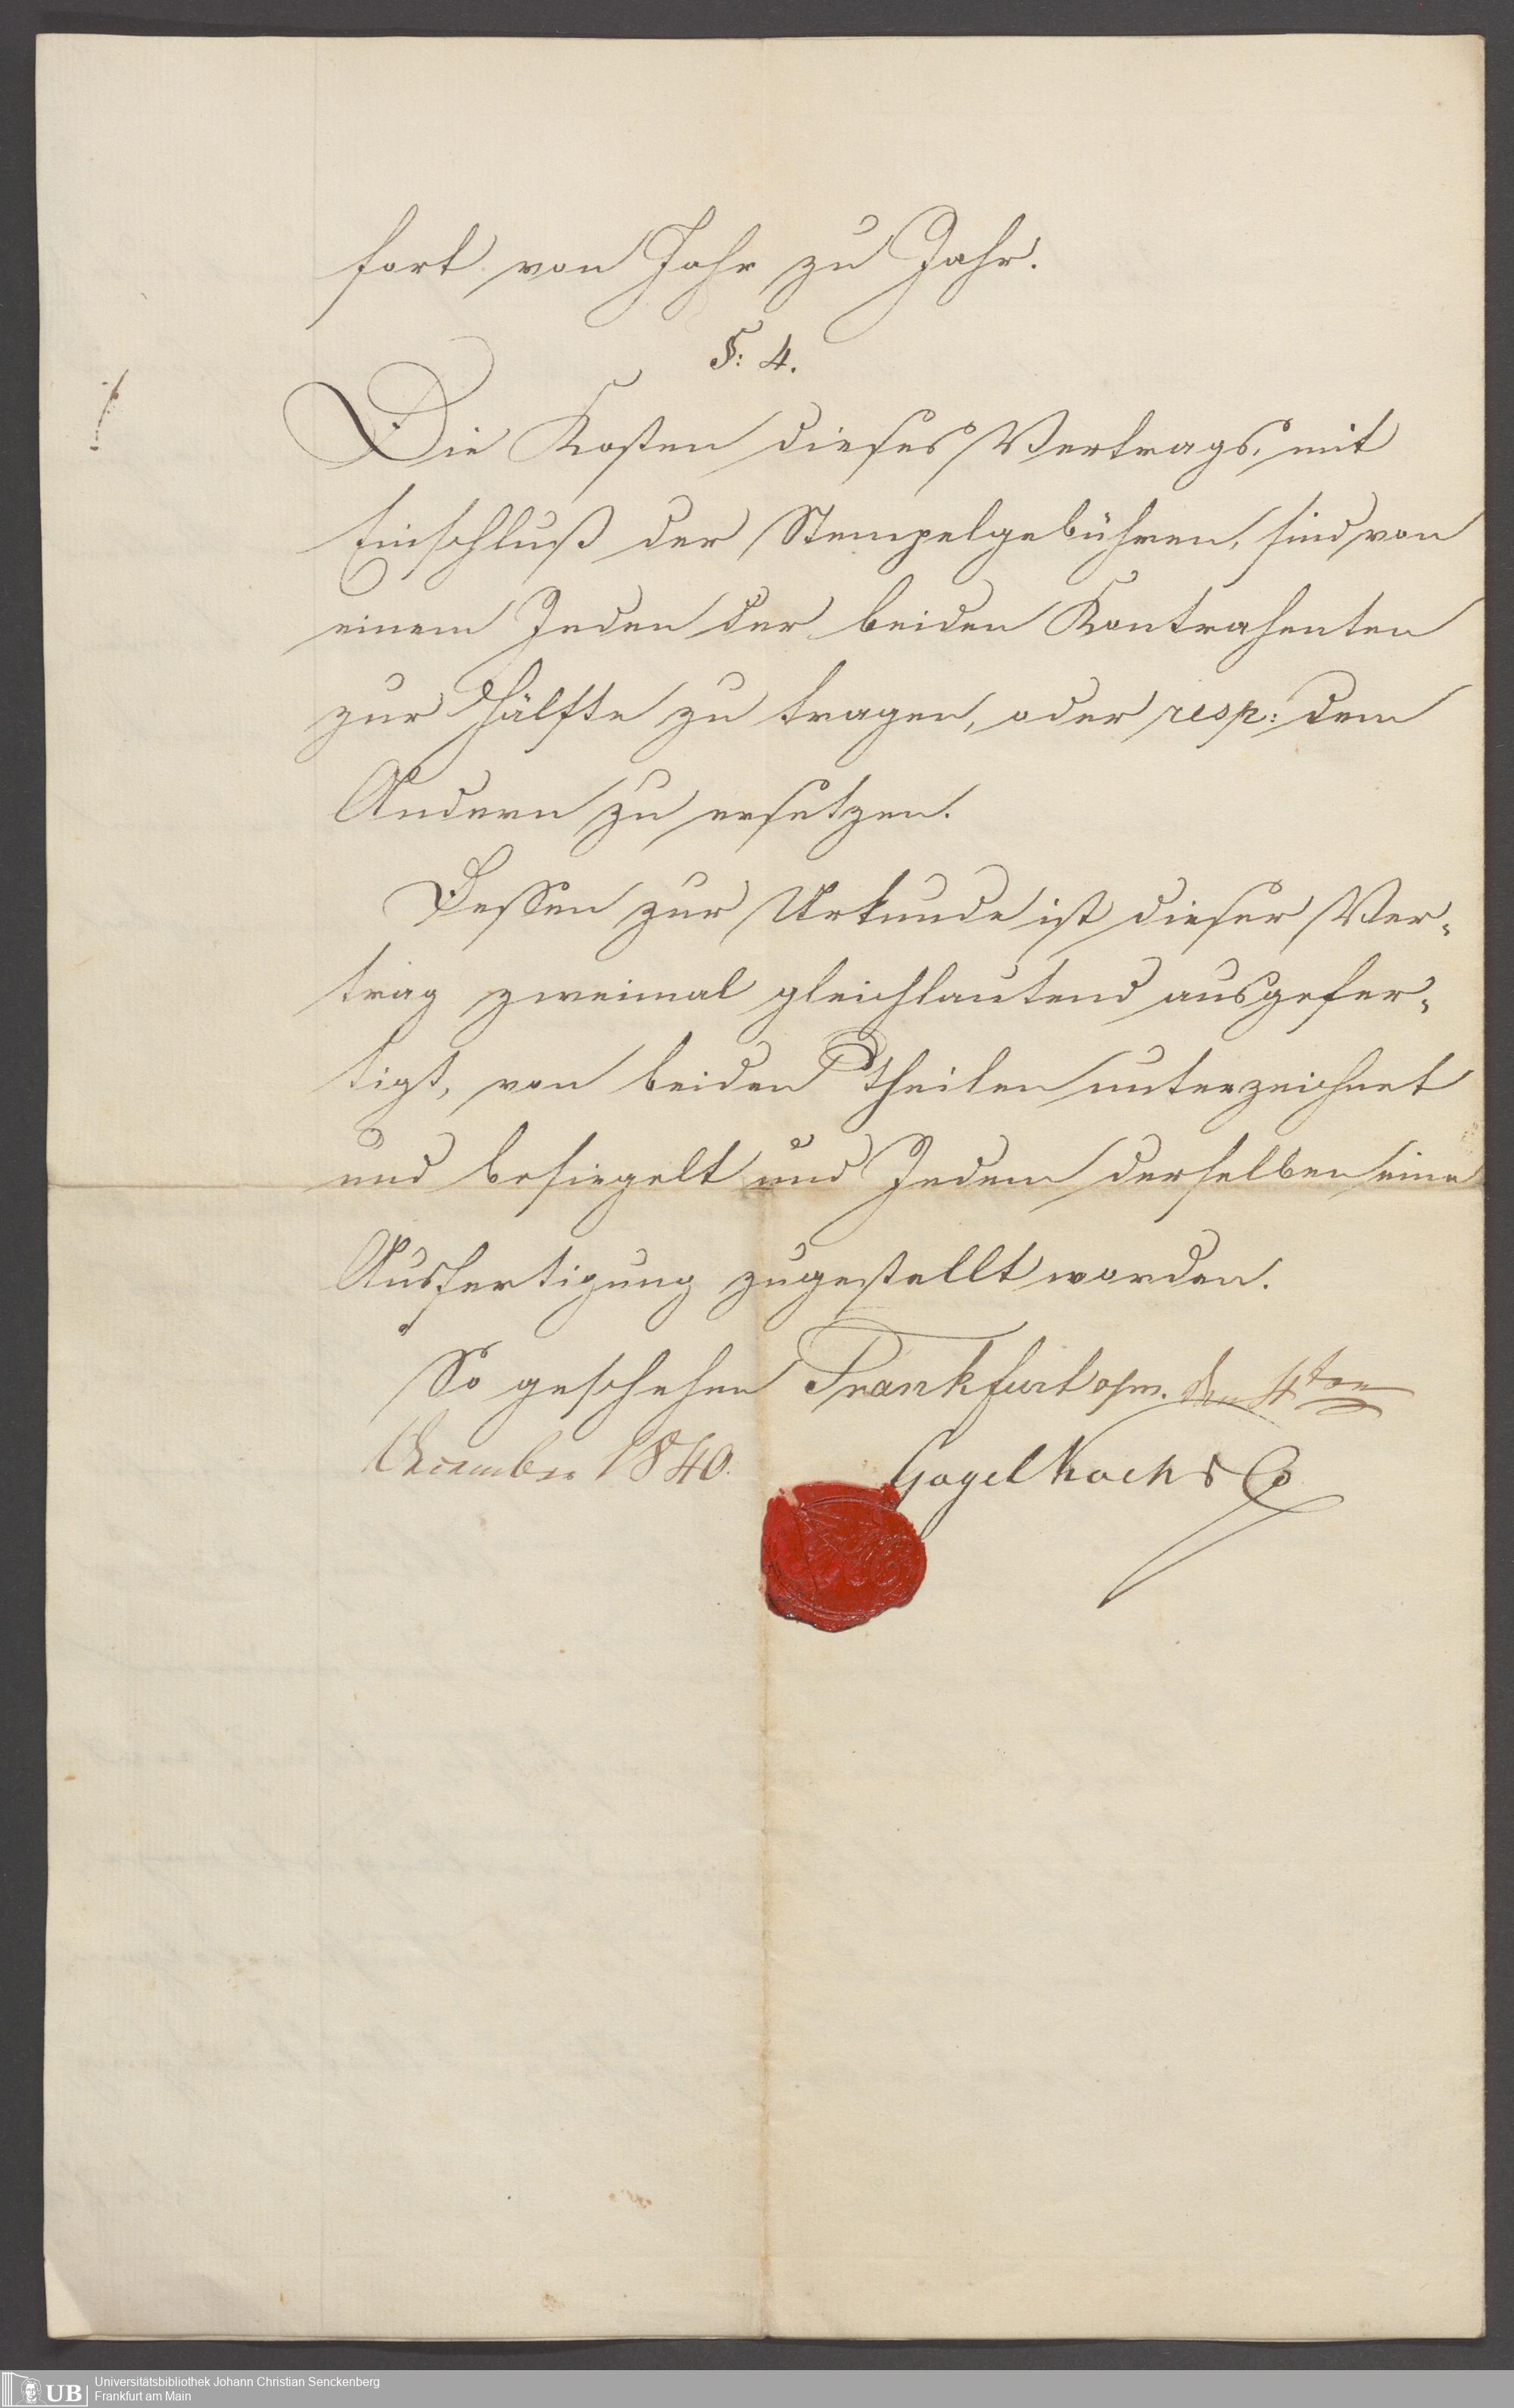 fort von Jahr zu Jahr.
§: 4.
Die Kosten dieses Vertrags, mit
Einschluß der Stempelgebühren, sind von
einem Jeden der beiden Kontrahenten
zur Hälfte zu tragen, oder resp: dem
Andern zu ersetzen.
Dessen zur Urkunde ist dieser Ver-
trag zweimal gleichlautend ausgefer-
tigt, von beiden Theilen unterzeichnet
und besiegelt und Jedem derselben eine
Ausfertigung zugestellt worden.
So geschehen Frankfurt a/m. den 4ten
December 1840.
Gogel Koch & Co
UB
Universitätsbibliothek Johann Christian Senckenberg
Frankfurt am Main